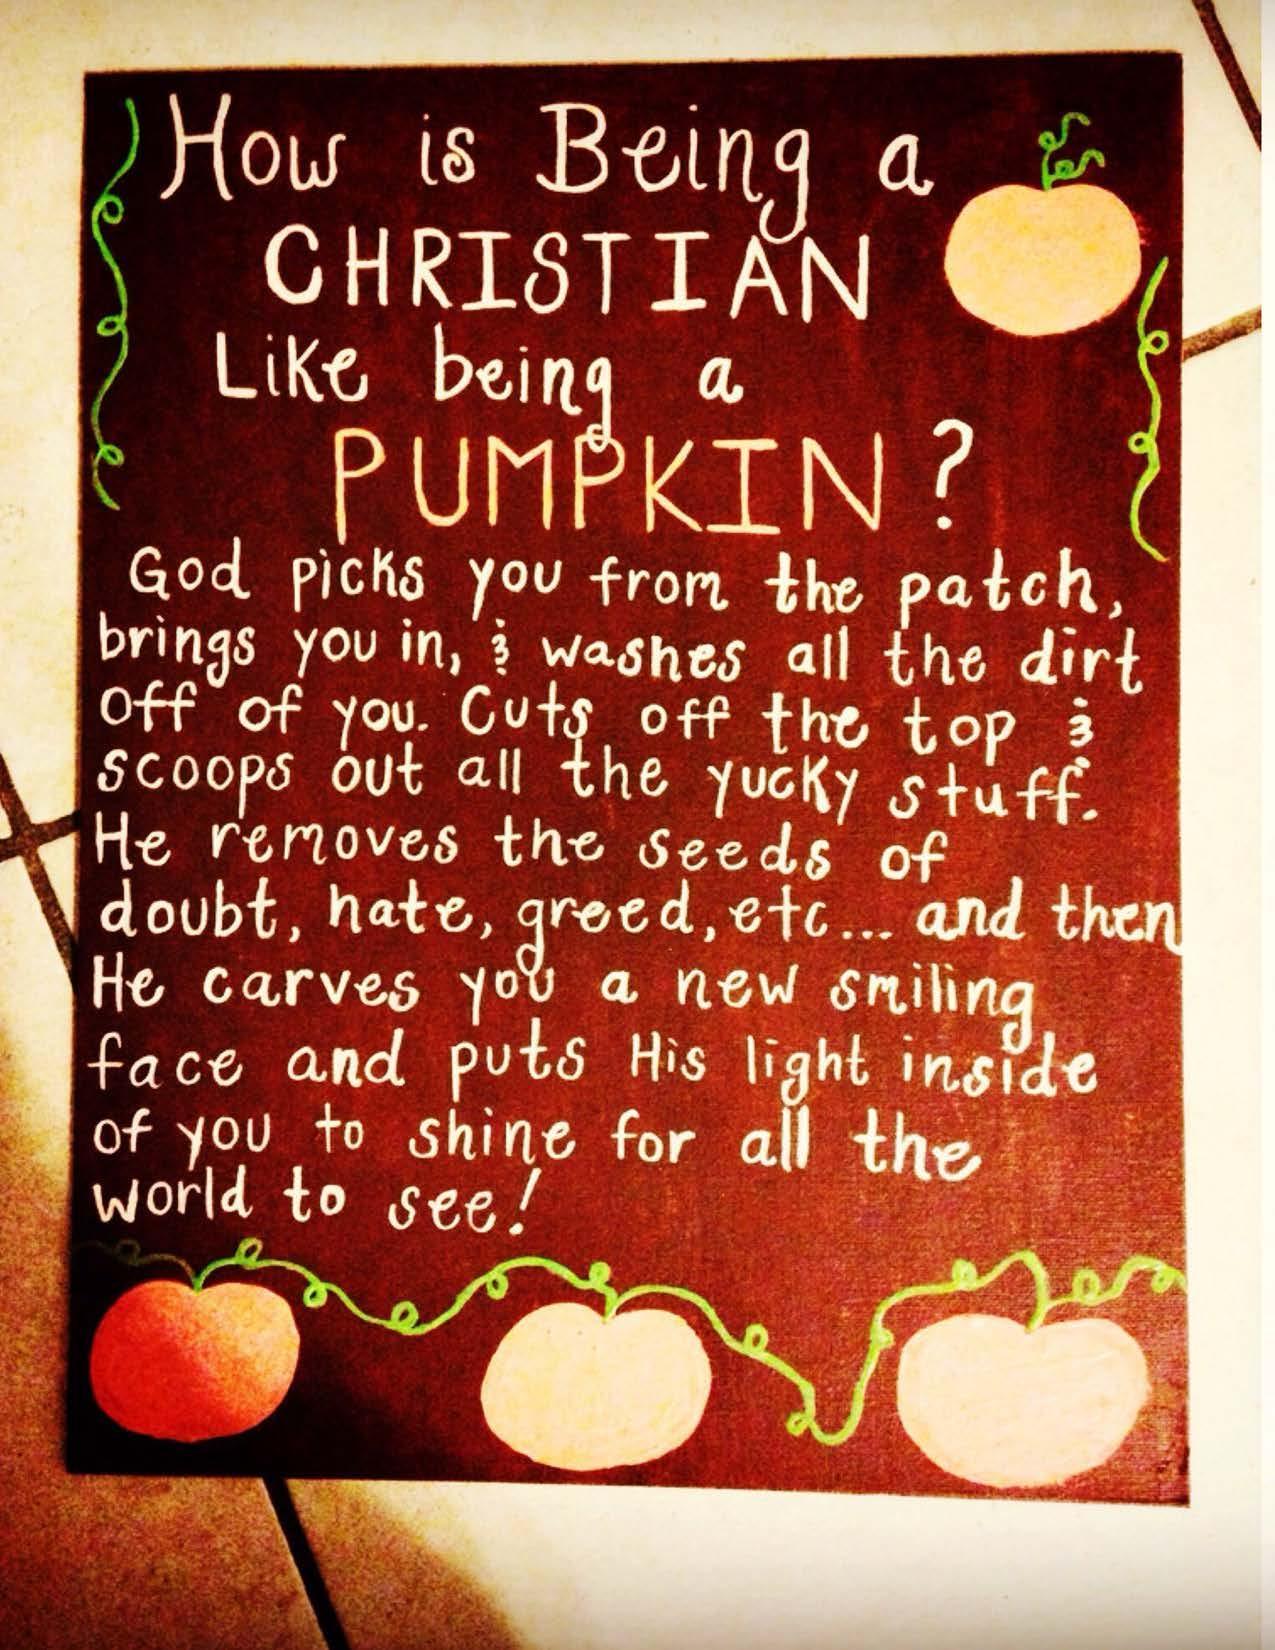 How is Being a
CHRISTIAN
Like being a
PUMPKIN?
God picks you from the patch,
brings you in, & washes all the dirt
off of you. Cuts off the top &
scoops out all the yucky stuff.
He removes the seeds of
doubt, hate, greed, etc... and then
He carves you a new smiling
face and puts His light inside
of you to shine for all the
world to see!